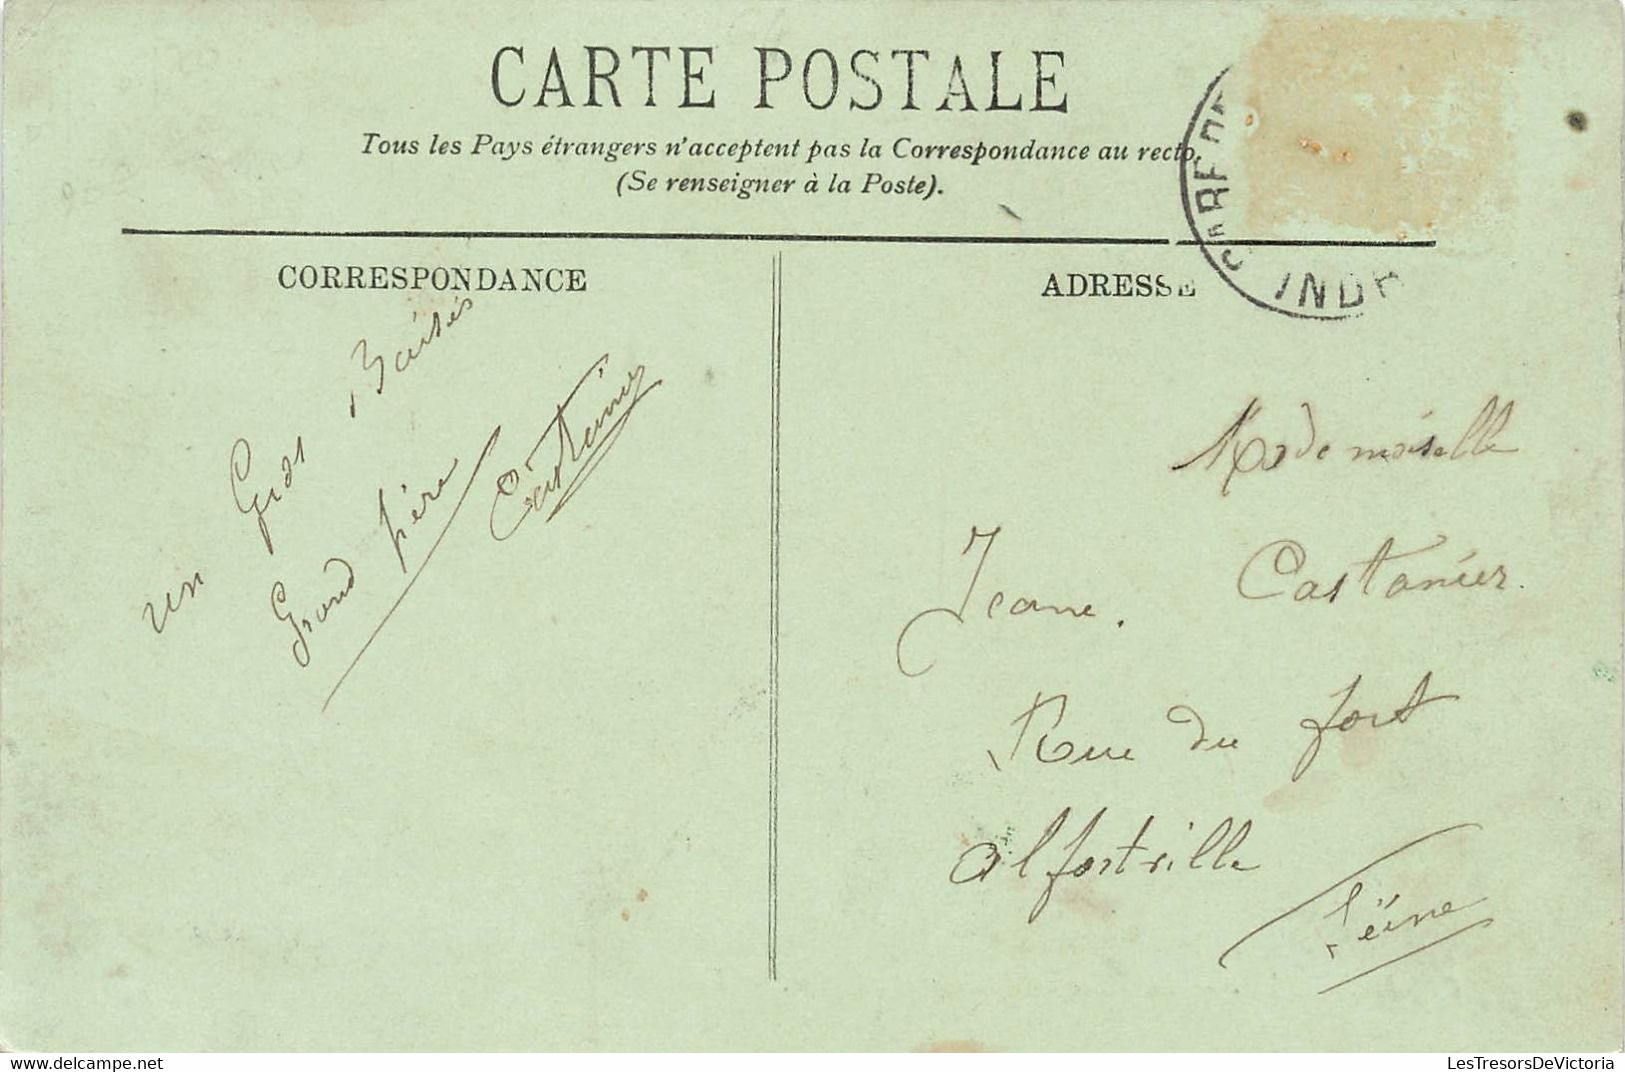 CARTE POSTALE
Tous les Pays étrangers n'acceptent pas la Correspondance au recto.
(Se renseigner à la Poste).
CORRESPONDANCE
un Gros Baisés
Grand père
Castanier
ADRESSE
INDR
Mademoiselle
Jeane. Castanier.
Rue du fort
alfortville
Seine
LesTresorsDeVictoria
delcampe.net